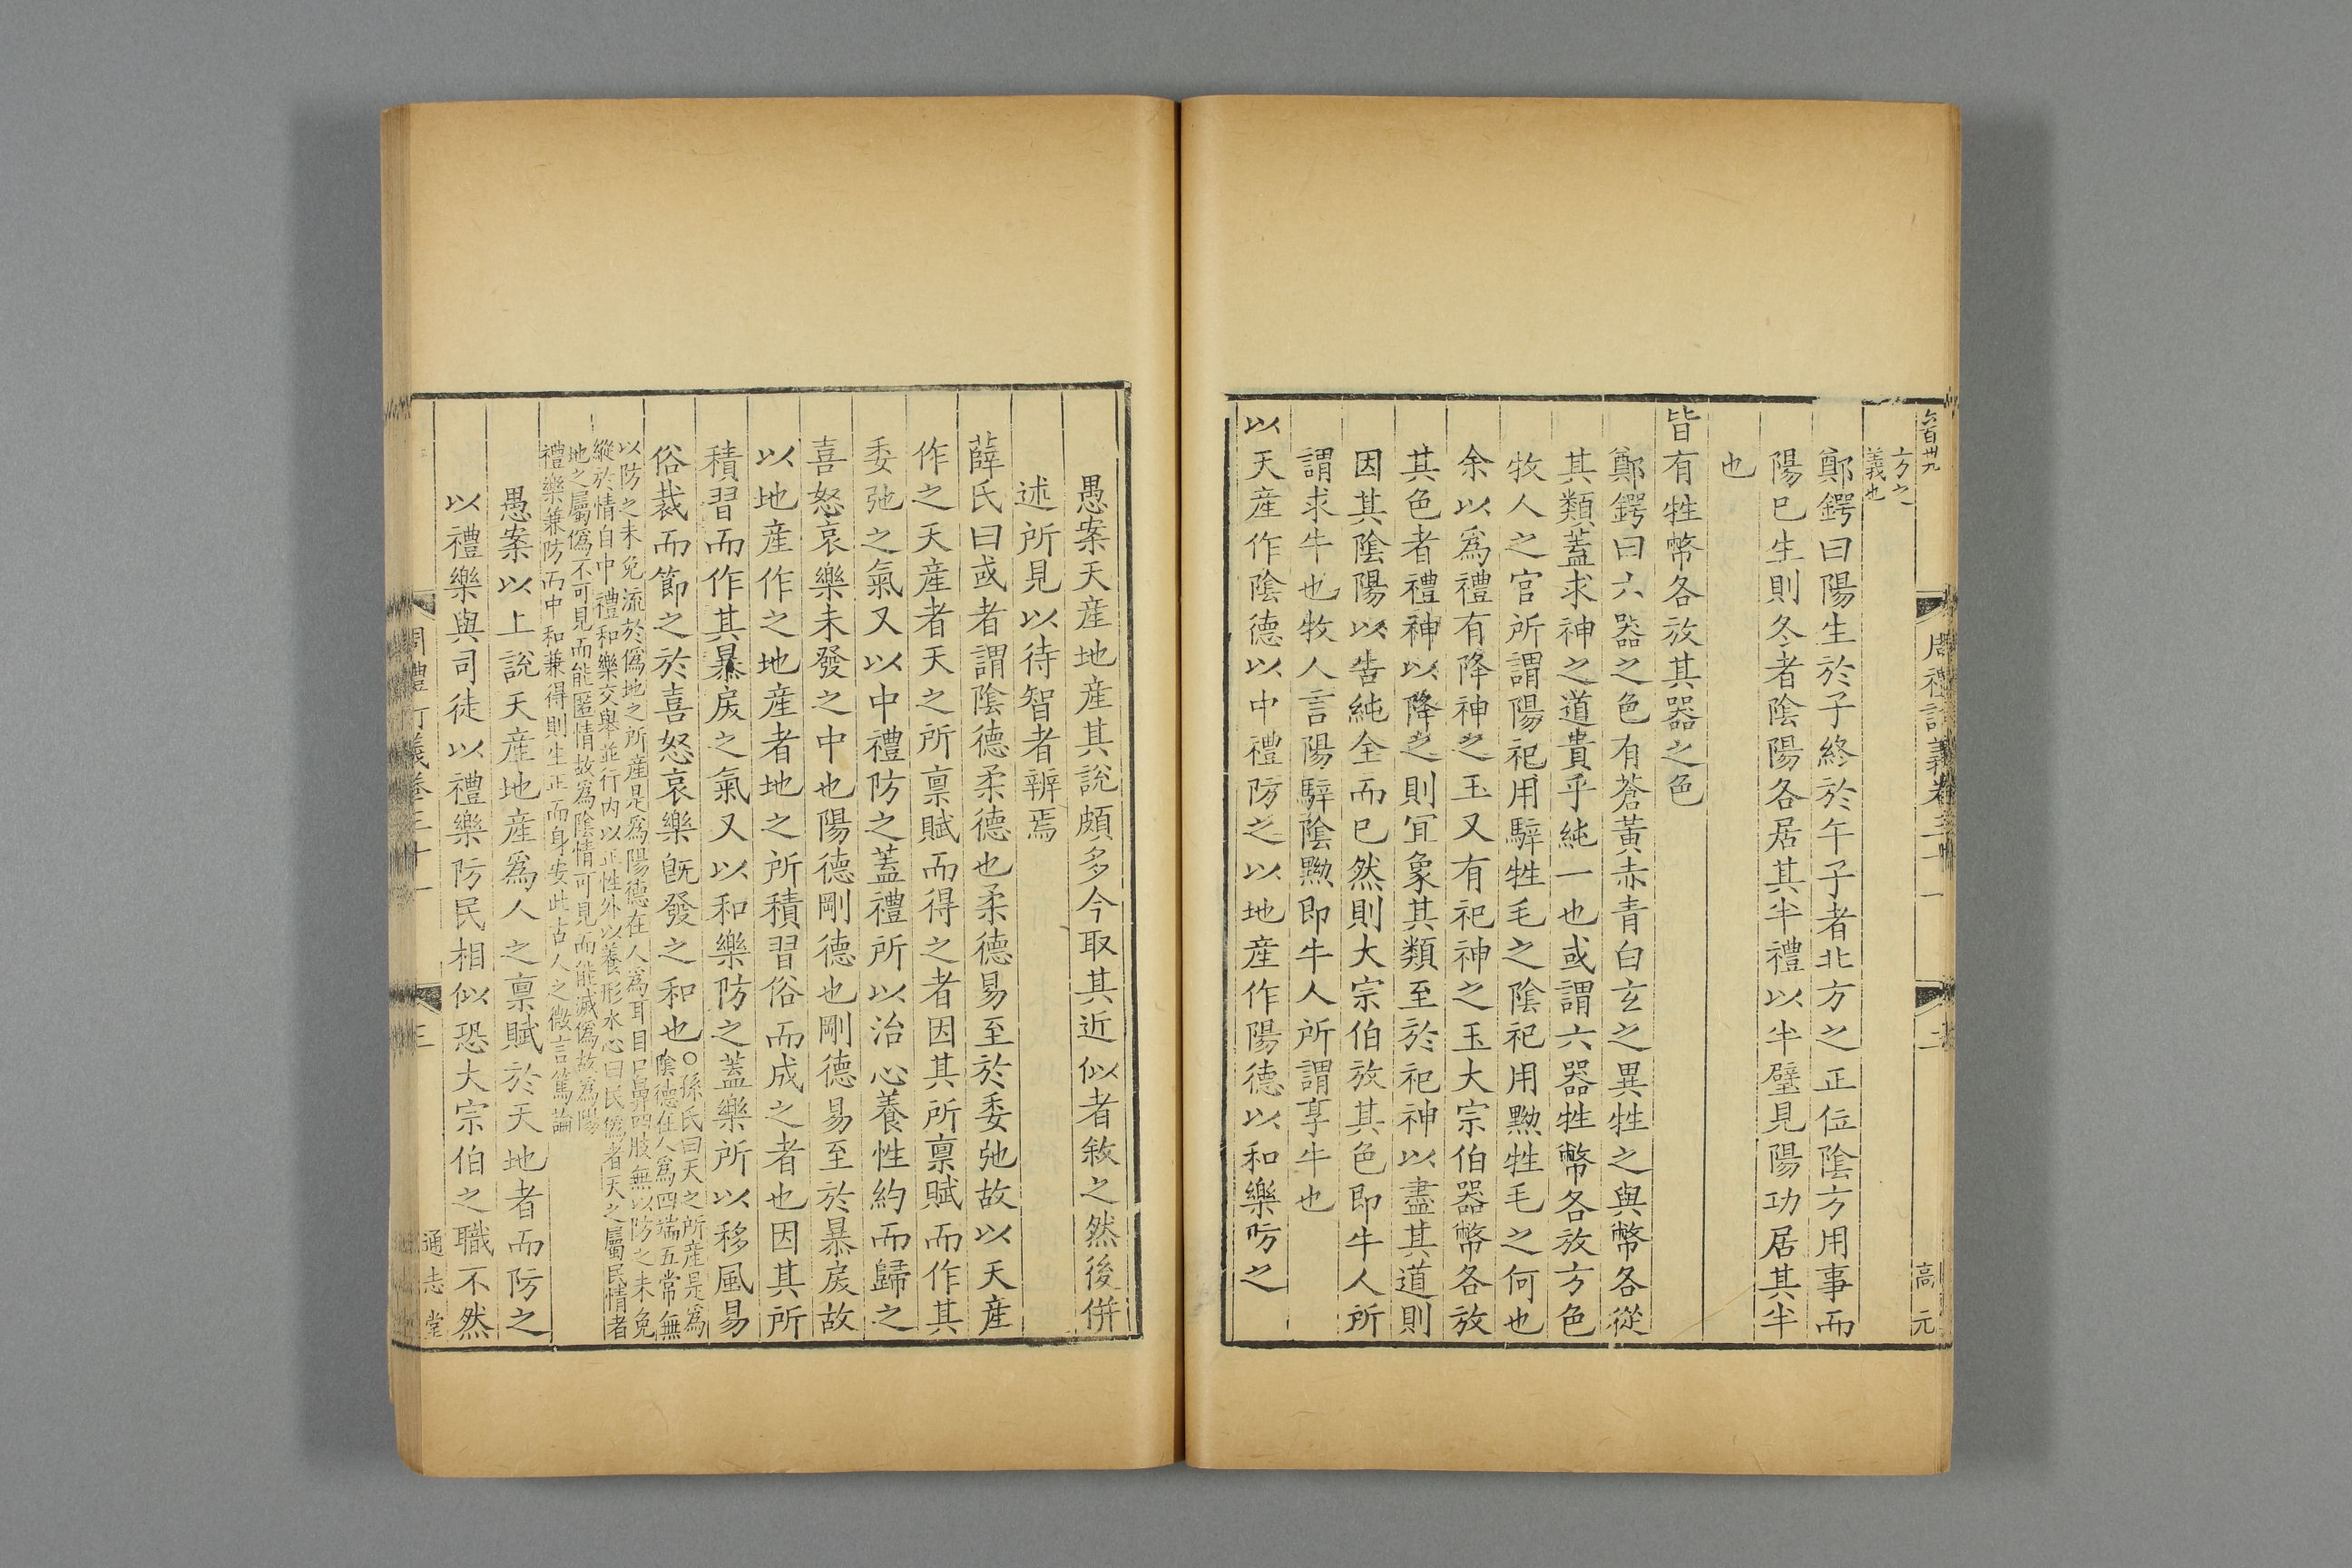 方之
義也
鄭鍔曰陽生於子終於午子者北方之正位陰方用事而
陽巳生則冬者陰陽各居其半禮以半璧見陽功居其半
也
皆有牲幣各放其器之色
鄭鍔曰六器之色有蒼黃赤青白玄之異牲之與幣各從
其類蓋求神之道貴乎純一也或謂六器牲幣各放方色
牧人之官所謂陽祀用騂牲毛之陰祀用黝牲毛之何也
余以爲禮有降神之玉又有祀神之玉大宗伯器幣各放
其色者禮神以降之則冝象其類至於祀神以盡其道則
因其陰陽以告純全而已然則大宗伯放其色即牛人所
謂求牛也牧人言陽騂陰黝即牛人所謂享牛也
以天産作陰德以中禮防之以地産作陽德以和樂防之
愚案天産地産其說頗多今取其近似者敘之然後併
述所見以待智者辨焉
薛氏曰或者謂陰德柔德也柔德易至於委弛故以天産
作之天産者天之所禀賦而得之者因其所禀賦而作其
委弛之氣又以中禮防之蓋禮所以治心養性約而歸之
喜怒哀樂未發之中也陽德剛德也剛德易至於暴戾故
以地産作之地産者地之所積習俗而成之者也因其所
積習而作其暴戾之氣又以和樂防之蓋樂所以移風易
俗裁而節之於喜怒哀樂旣發之和也○孫氏曰天之所産是爲
陰德在人爲四端五常無
以防之未免流於僞地之所産是爲陽德在人爲耳目口鼻四肢無以防之未免
縱於情自中禮和樂交舉並行内以正性外以養形水心曰民僞者天之屬民情者
地之屬僞不可見而能匿情故爲陰情可見而能滅僞故爲陽
禮樂兼防而中和兼得則生正而身安此古人之微言篤論
愚案以上說天産地産爲人之禀賦於天地者而防之
以禮樂與司徒以禮樂防民相似恐大宗伯之職不然
周禮訂義卷三十一
三
通志堂